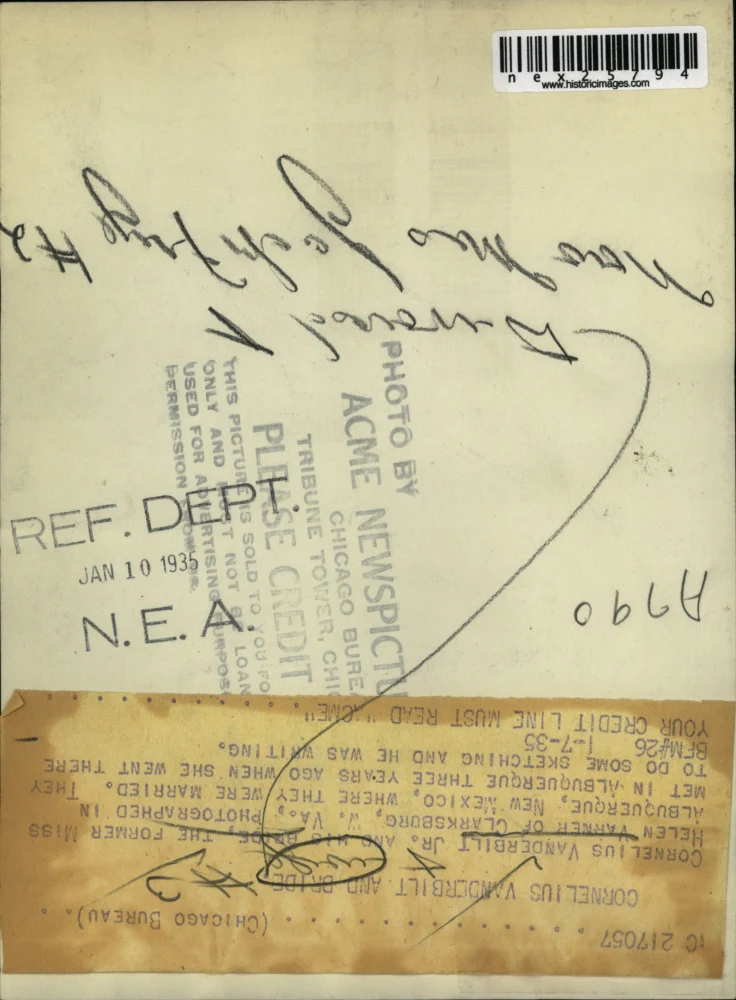 nex25794
www.historicimages.com
New Mex
Divorced
#2
A790
PHOTO BY
ACME NEWSPICTU
CHICAGO BUREA
TRIBUNE TOWER, CHIC
PLEASE CREDIT
THIS PICTURE IS SOLD TO YOU FO
ONLY AND MUST NOT BE LOAN
USED FOR ADVERTISING PURPOSE
PERMISSION
REF. DEPT.
JAN 10 1935
N.E.A.
C 217057 . . . . . . . . . . . . (CHICAGO BUREAU) . .
CORNELIUS VANDERBILT AND BRIDE
#3
CORNELIUS VANDERBILT JR. AND HIS BRIDE, THE FORMER MISS
HELEN VARNER OF CLARKSBURG, W. VA., PHOTOGRAPHED IN
ALBUQUERQUE, NEW MEXICO, WHERE THEY WERE MARRIED. THEY
MET IN ALBUQUERQUE THREE YEARS AGO WHEN SHE WENT THERE
TO DO SOME SKETCHING AND HE WAS WRITING.
BFM#26 1-7-35
YOUR CREDIT LINE MUST READ "ACME" . . . . . . . . .